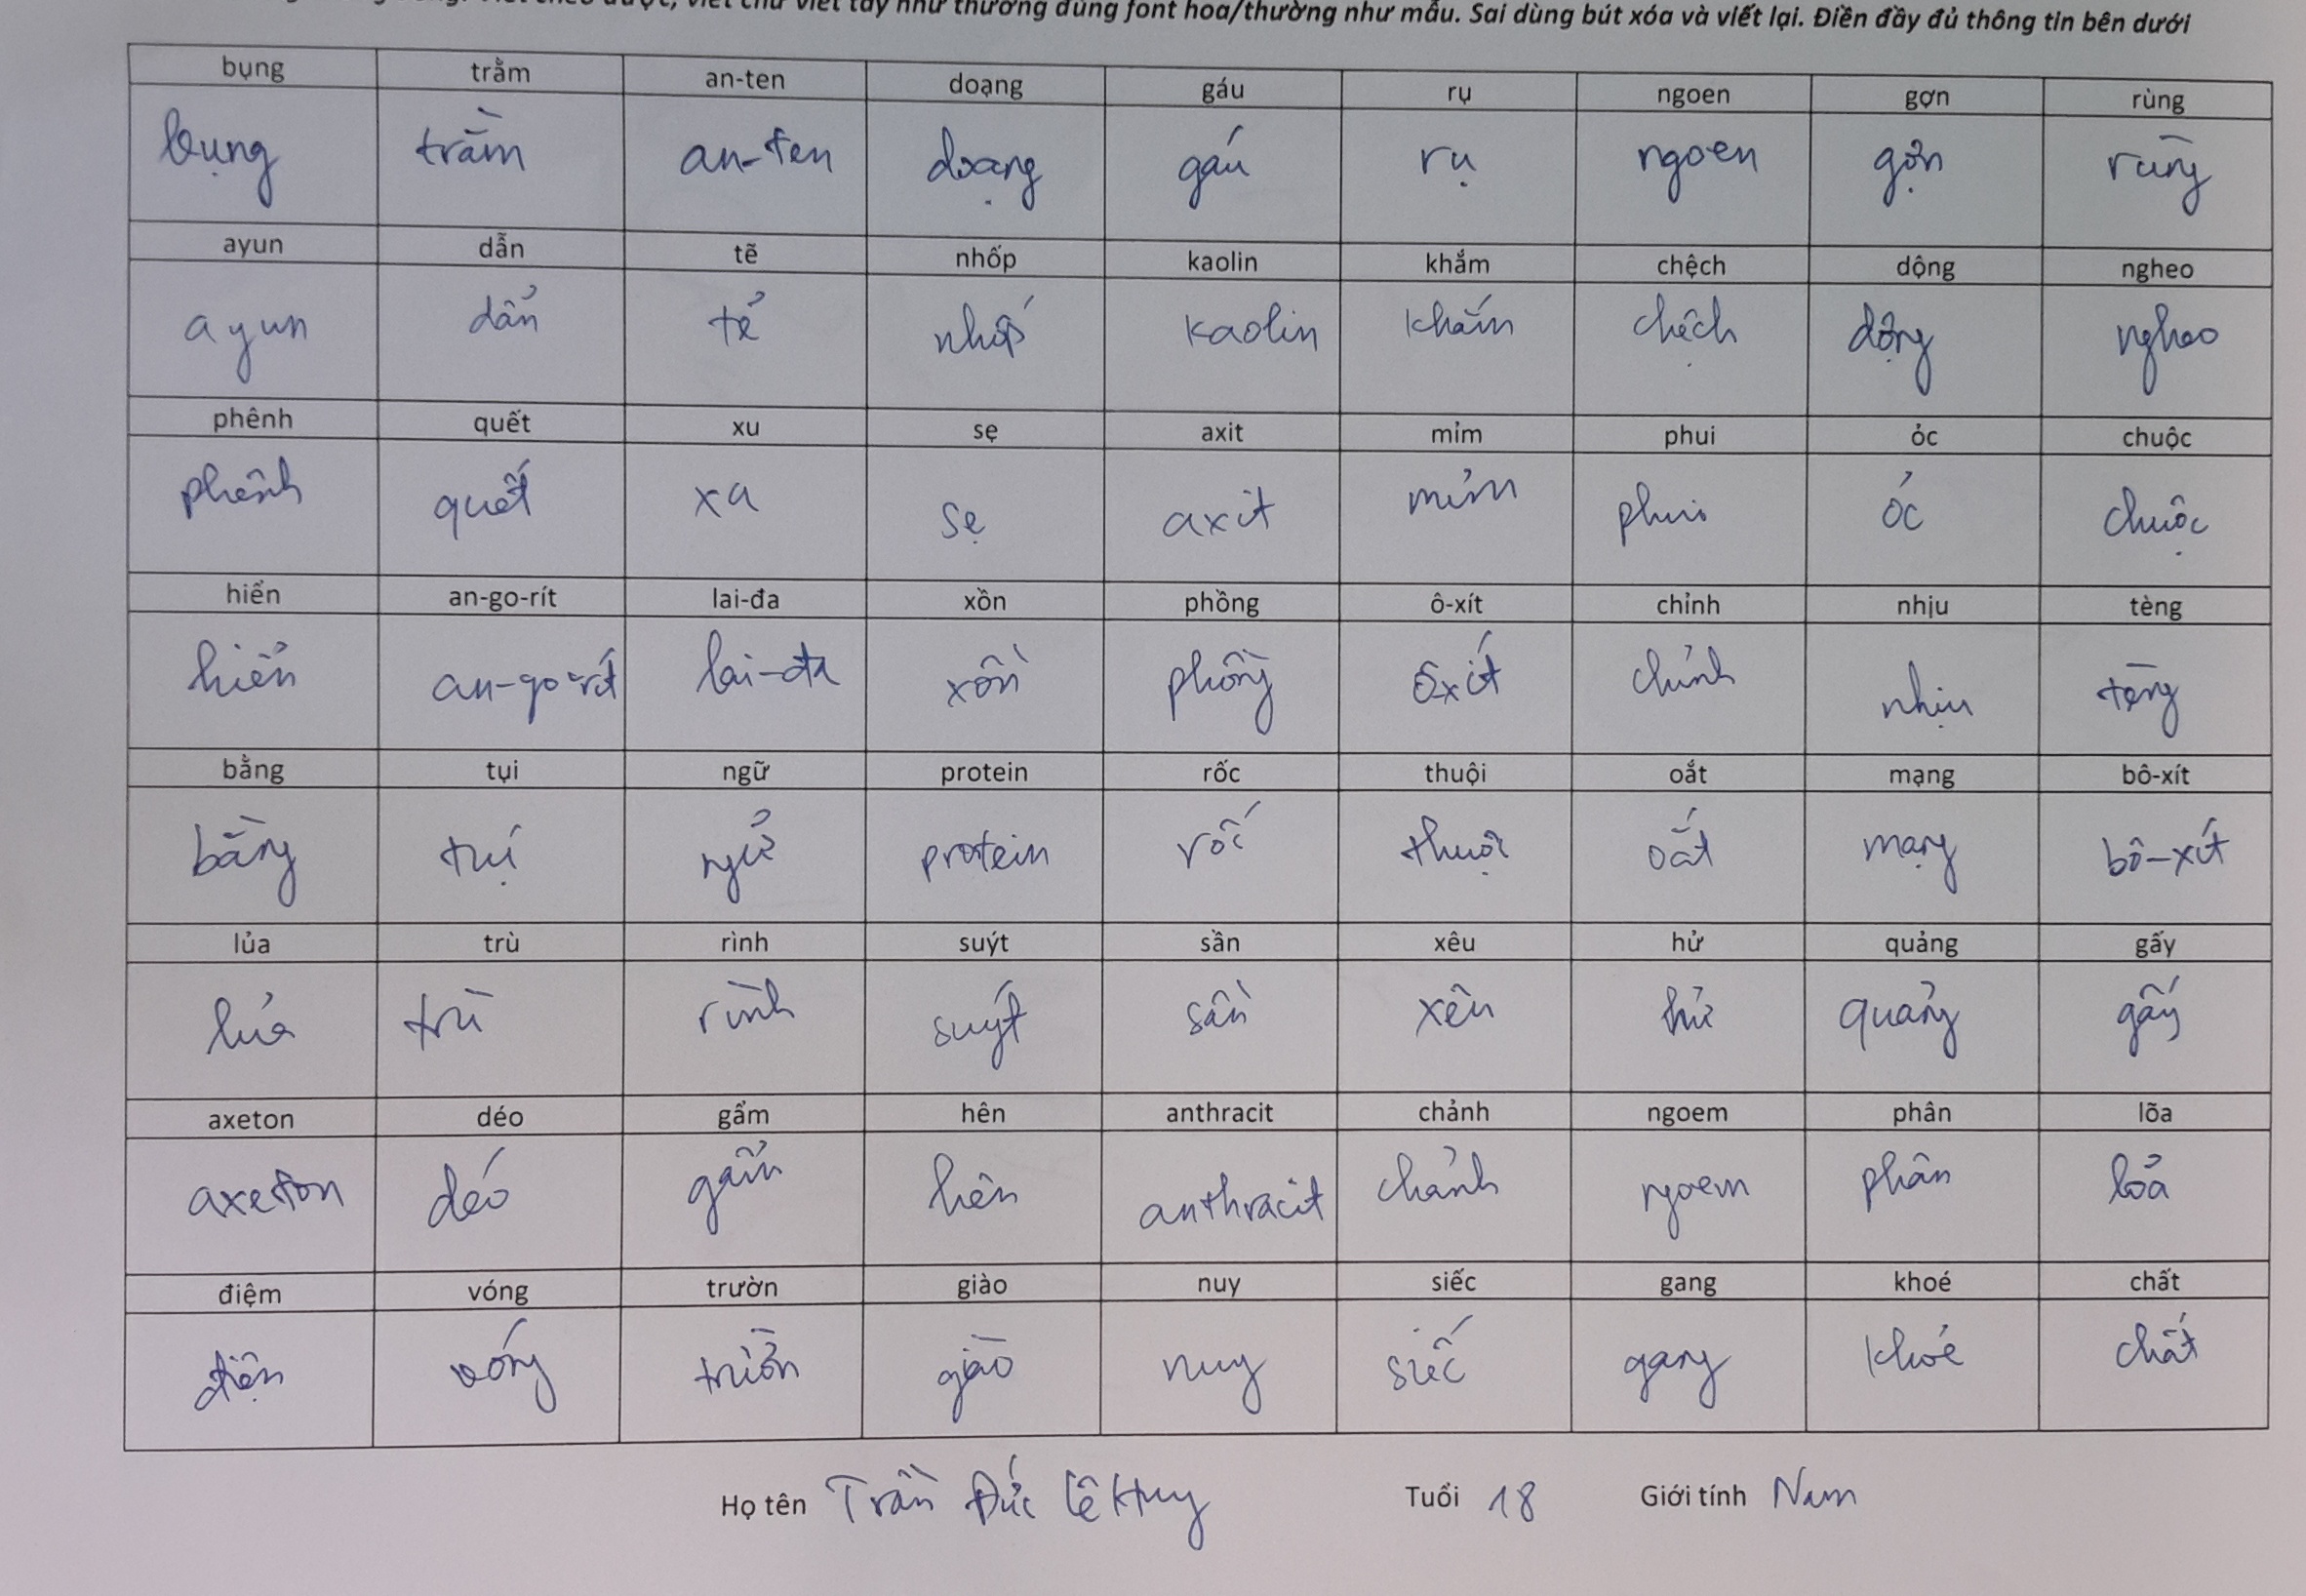 viết chữ viết tay như thường dùng font hoa/thường như mẫu. Sai dùng bút xóa và viết lại. Điền đầy đủ thông tin bên dưới
bụng trằm an-ten doạng gáu rụ ngoen gợn rùng
bụng trằm an-ten doạng gáu rụ ngoen gợn rùng
ayun dẫn tẽ nhốp kaolin khắm chệch dộng ngheo
ayun dẩn tẻ nhốp kaolin khắm chệch dộng ngheo
phênh quết xu sẹ axit mỉm phui ỏc chuộc
phênh quết xu sẹ axit mỉm phui ỏc chuộc
hiển an-go-rít lai-đa xồn phồng ô-xít chỉnh nhịu tèng
hiển an-go-rít lai-đa xồn phồng ô-xít chỉnh nhịu tèng
bằng tụi ngữ protein rốc thuội oắt mạng bô-xít
bằng tụi ngử protein rốc thuội oắt mạng bô-xít
lủa trù rình suýt sần xêu hử quảng gấy
lủa trù rình suýt sần xêu hử quảng gấy
axeton déo gẩm hên anthracit chảnh ngoem phân lõa
axeton déo gẩm hên anthracit chảnh ngoem phân lỏa
điệm vóng trườn giào nuy siếc gang khoé chất
điệm vóng trườn giào nuy siếc gang khoé chất
Họ tên Trần Đức Lê Huy Tuổi 18 Giới tính Nam